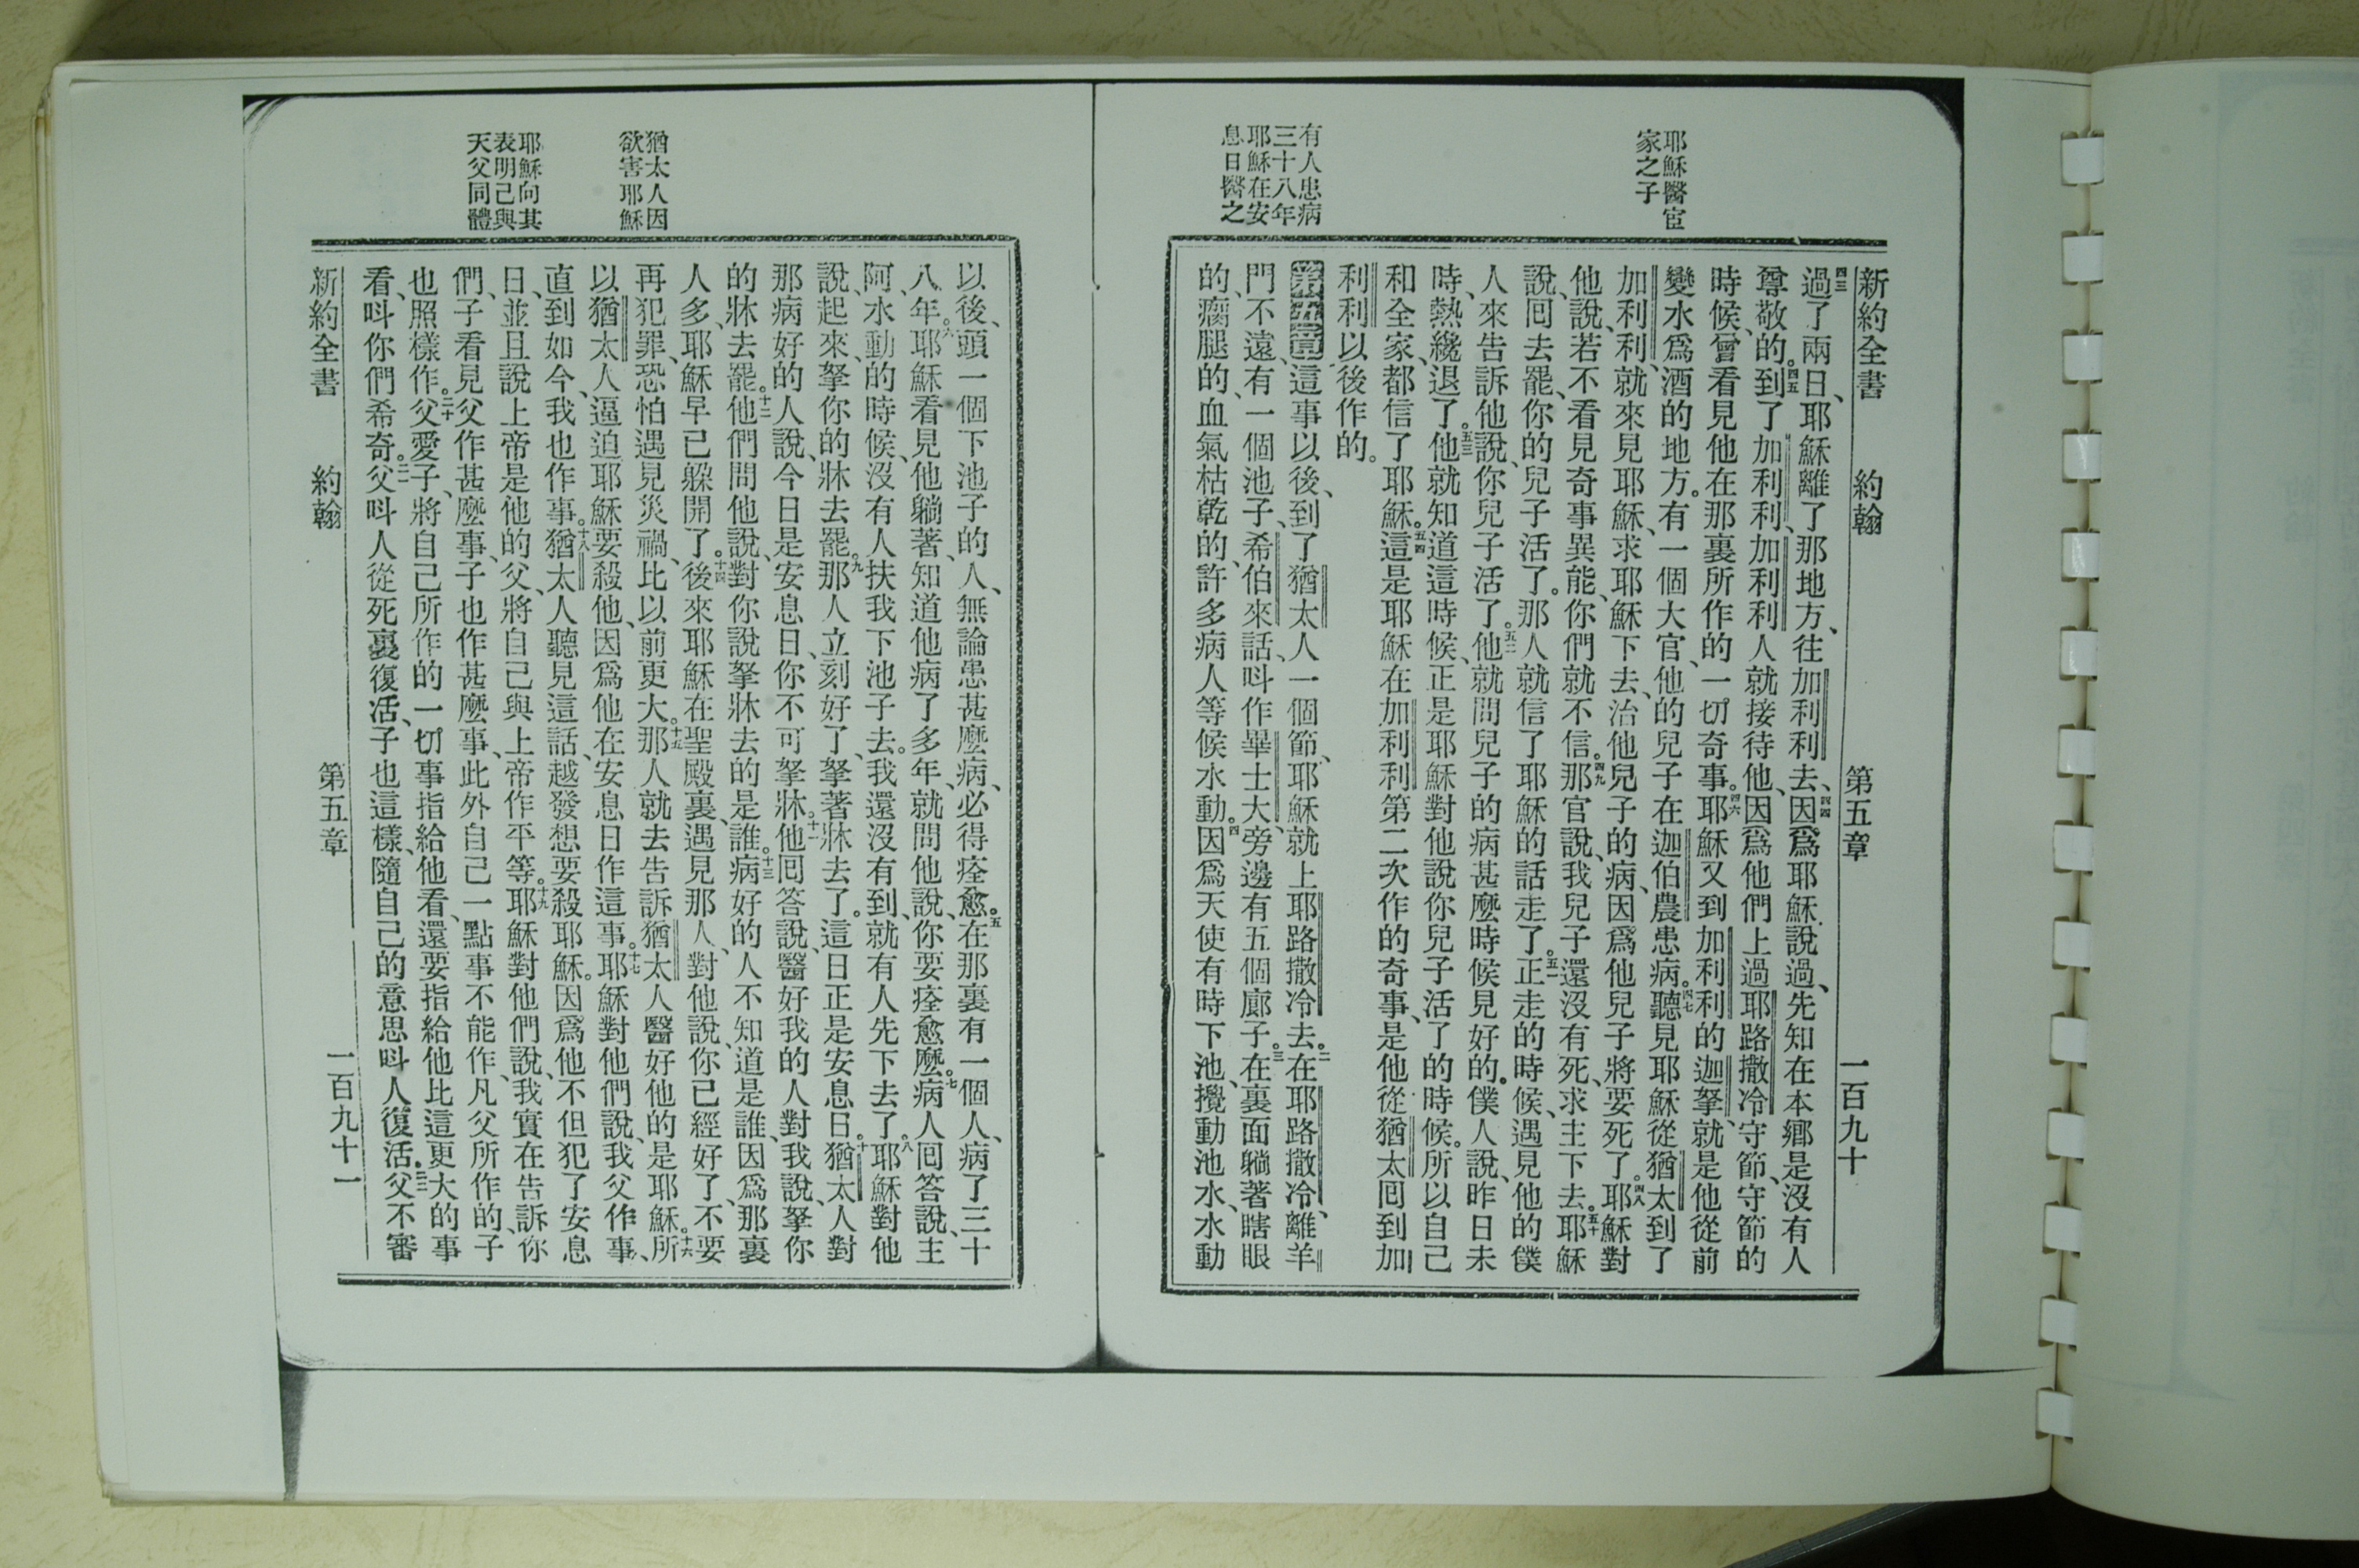 耶穌醫宦
家之子
有人患病
三十八年
耶穌在安
息日醫之
新約全書　約翰　第五章　一百九十
四三過了兩日、耶穌離了那地方、往加利利去、四四因爲耶穌說過、先知在本鄉是沒有人
尊敬的。四五到了加利利、加利利人就接待他、因爲他們上過耶路撒冷守節、守節的
時候、曾看見他在那裏所作的一切奇事。四六耶穌又到加利利的迦拏、就是他從前
變水爲酒的地方。有一個大官、他的兒子在迦伯農患病。四七聽見耶穌從猶太到了
加利利、就來見耶穌、求耶穌下去、治他兒子的病、因爲他兒子將要死了。四八耶穌對
他說、若不看見奇事異能、你們就不信。四九那官說、我兒子還沒有死、求主下去。五十耶穌
說、囘去罷、你的兒子活了。那人就信了耶穌的話走了。五一正走的時候、遇見他的僕
人來告訴他說、你兒子活了。五二他就問兒子的病甚麼時候見好的。僕人說、昨日未
時、熱纔退了。五三他就知道這時候、正是耶穌對他說你兒子活了的時候。所以自己
和全家、都信了耶穌。五四這是耶穌在加利利第二次作的奇事、是他從猶太囘到加
利利以後作的。
第五章這事以後、到了猶太人一個節、耶穌就上耶路撒冷去。二在耶路撒冷、離羊
門不遠、有一個池子、希伯來話、呌作畢士大、旁邊有五個廊子。三在裏面躺著瞎眼
的、瘸腿的、血氣枯乾的、許多病人等候水動。四因爲天使有時下池、攪動池水、水動
猶太人因
欲害耶穌
耶穌向其
表明己與
天父同體
以後、頭一個下池子的人、無論患甚麼病、必得痊愈。五在那裏有一個人、病了三十
八年。六耶穌看見他躺著、知道他病了多年、就問他說、你要痊愈麼。七病人囘答說、主
阿、水動的時候、沒有人扶我下池子去。我還沒有到、就有人先下去了。八耶穌對他
說、起來、拏你的牀去罷。九那人立刻好了、拏著牀去了。這日正是安息日。十猶太人對
那病好的人說、今日是安息日、你不可拏牀。十一他囘答說、醫好我的人對我說、拏你
的牀去罷。十二他們問他說、對你說拏牀去的是誰。十三病好的人不知道是誰、因爲那裏
人多、耶穌早已躱開了。十四後來耶穌在聖殿裏、遇見那人、對他說、你已經好了、不要
再犯罪、恐怕遇見災禍、比以前更大。十五那人就去告訴猶太人醫好他的是耶穌。十六所
以猶太人逼迫耶穌、要殺他、因爲他在安息日作這事。十七耶穌對他們說、我父作事、
直到如今、我也作事。十八猶太人聽見這話、越發想要殺耶穌。因爲他不但犯了安息
日、並且說上帝是他的父、將自己與上帝作平等。十九耶穌對他們說、我實在告訴你
們、子看見父作甚麼事、子也作甚麼事、此外自己一點事不能作、凡父所作的、子
也照樣作。二十父愛子、將自己所作的一切事指給他看、還要指給他比這更大的事
看、呌你們希奇。二一父呌人從死裏復活、子也這樣、隨自己的意思呌人復活。二二父不審
新約全書　約翰　第五章　一百九十一